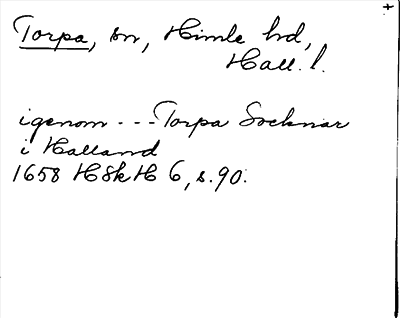 Torpa, sn, Himle hd,
Hall. l.
igenom - - - Torpa Socknar
i Halland
1658 HSkH 6, s. 90.